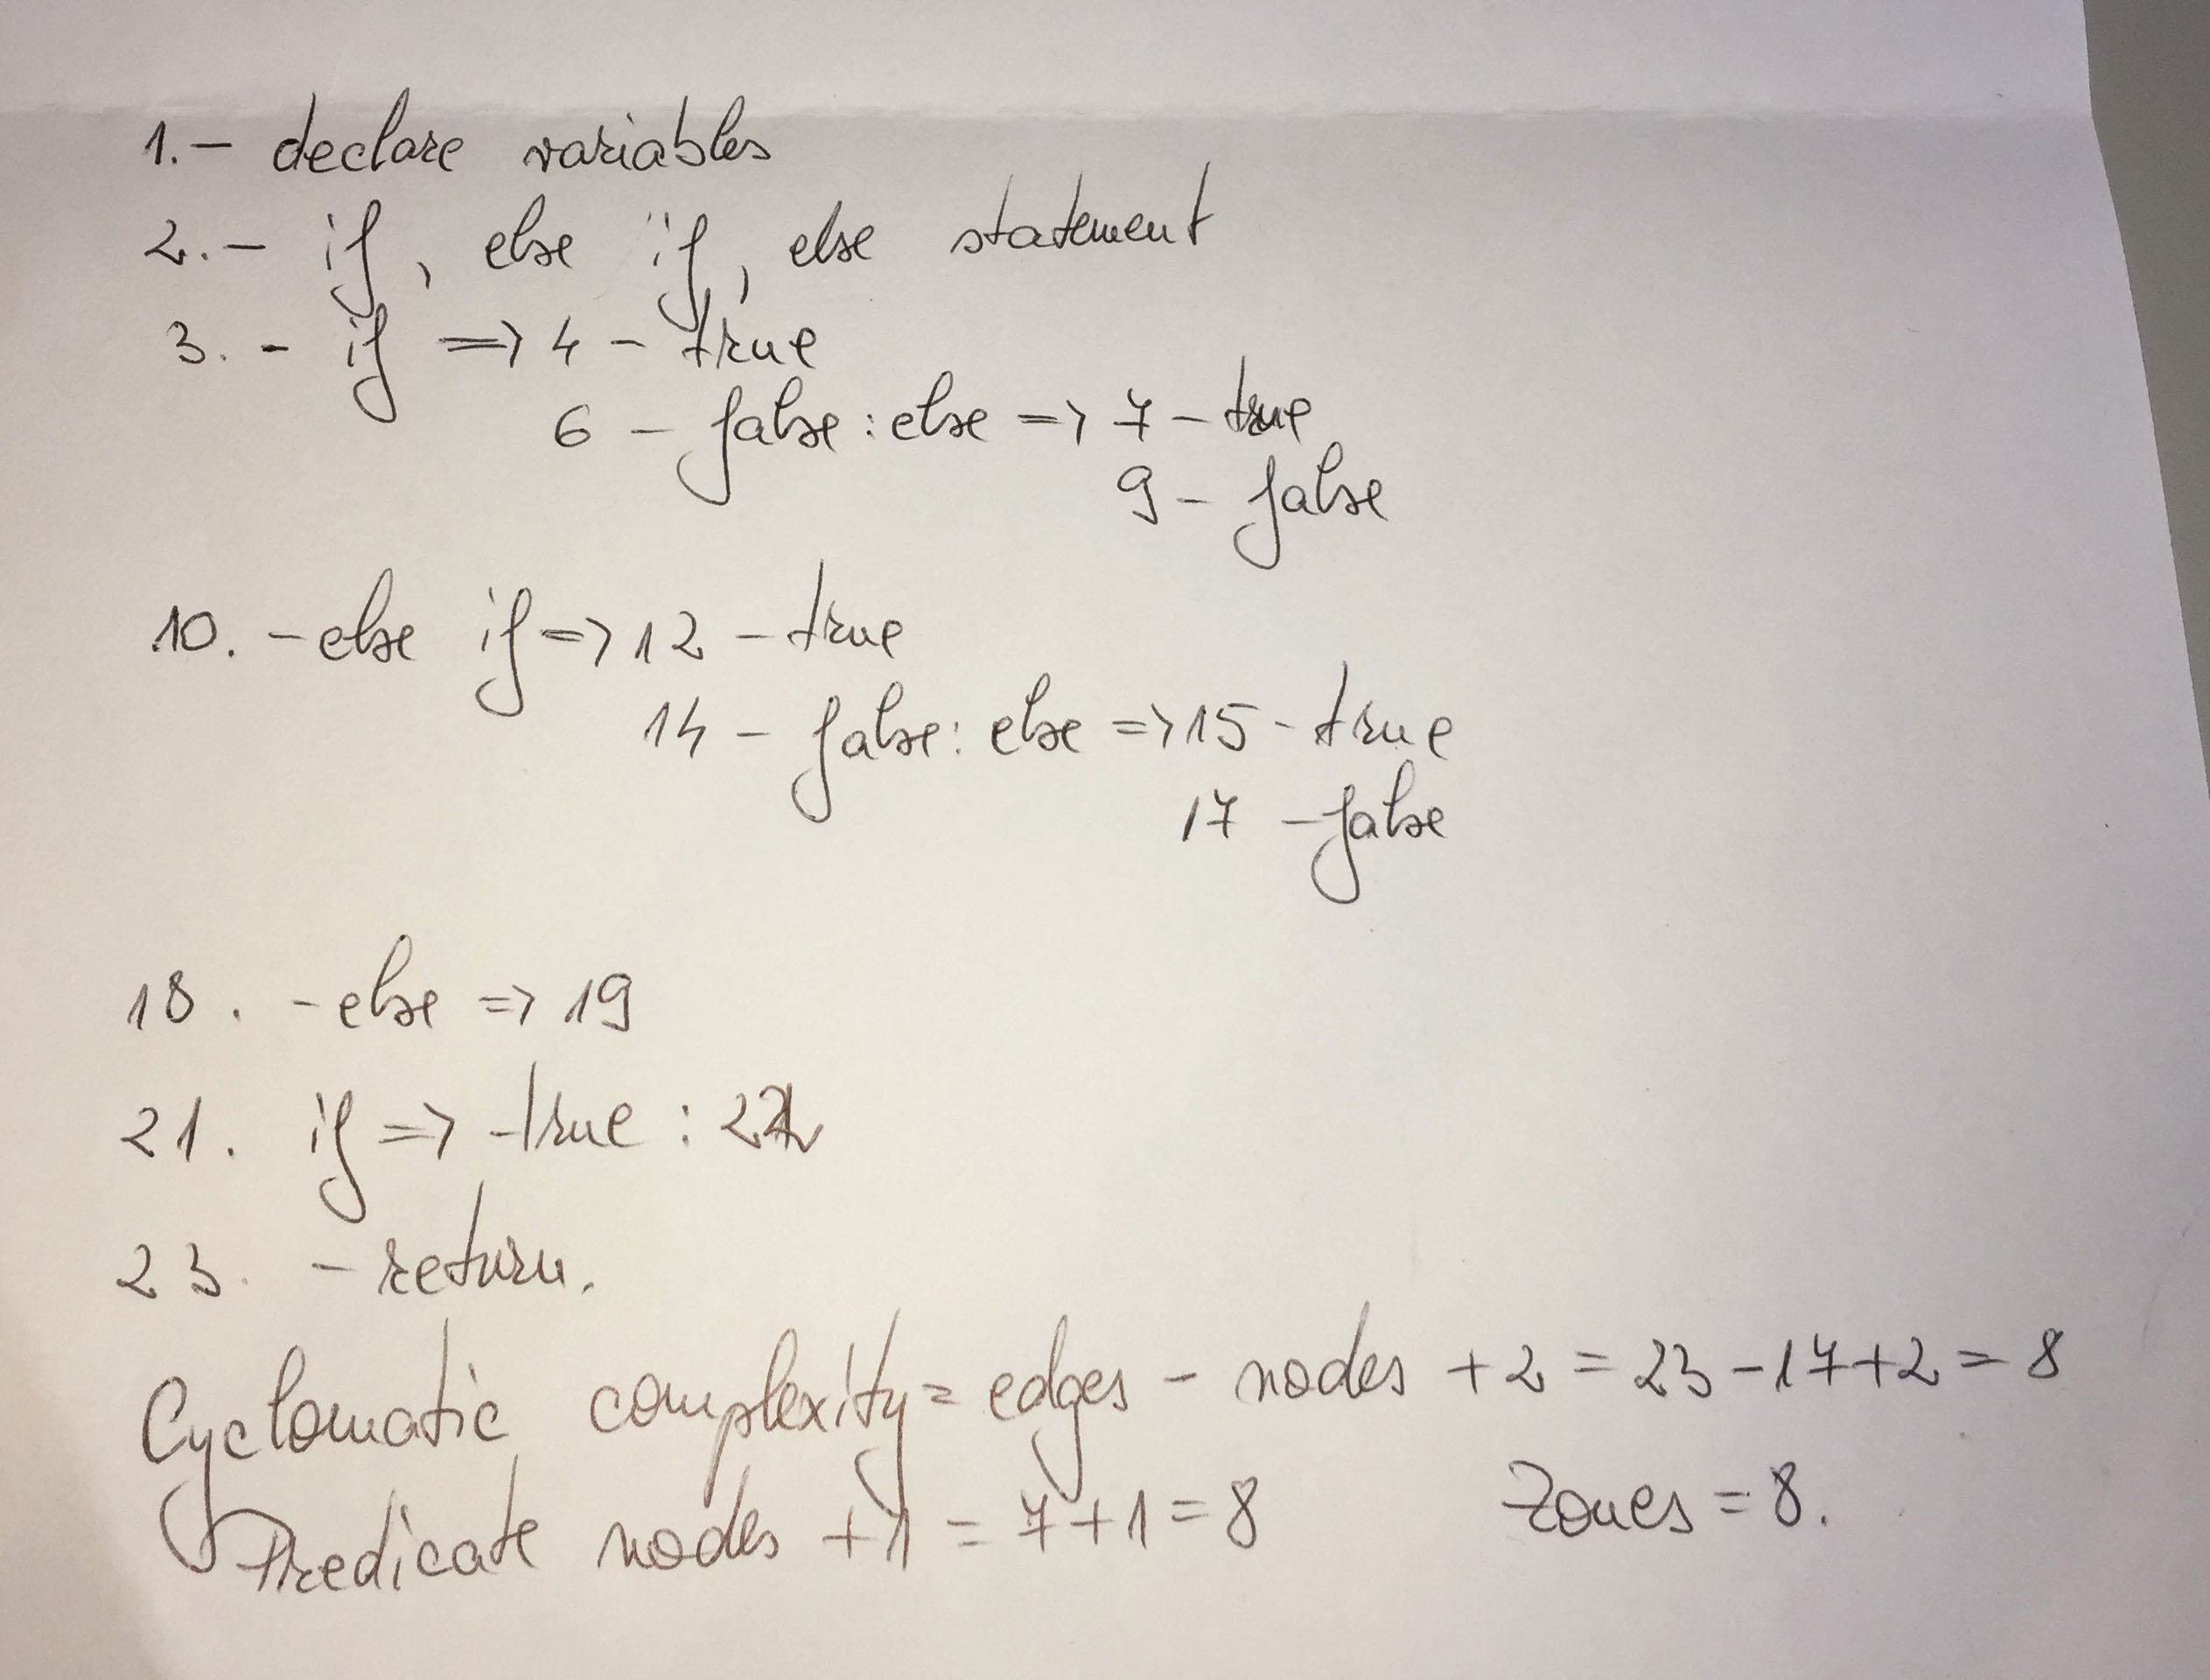 1.- declare variables
2.- if, else if, else statement
3.- if => 4 - true
6 - false : else => 7 - true
9 - false
10. - else if => 12 - true
14 - false : else => 15 - true
17 - false
18. - else => 19
21. if => true : 22
23. - return.
Cyclomatic complexity = edges - nodes + 2 = 23 - 17 + 2 = 8
Predicate nodes + 1 = 7 + 1 = 8 Zones = 8.